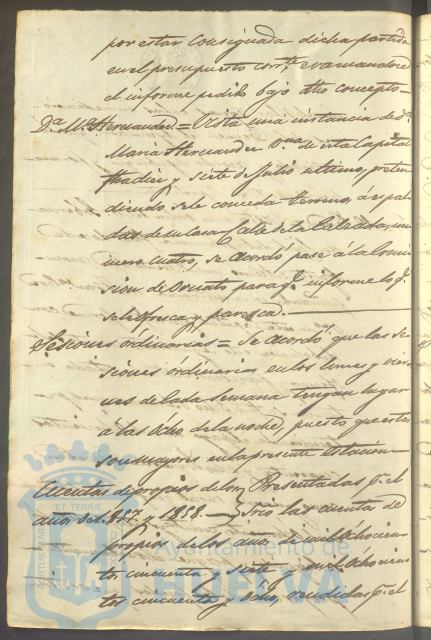 por estar consignada dicha partida
en el presupuesto corr.te evacuandose
el informe pedido bajo dho concepto=
D.a M.a Hernandez = Vista una instancia de D.a
Maria Hernandez v.na de esta Capital
fha diez y siete de Julio ultimo, preten
diendo se le conceda terreno, á espal
das de su casa Calle de la Calzada, nu
mero cuatro, se acordó pase á la Comi
sion de Ornato para q.e informe lo q.
se le ofresca y paresca.
Sesiones órdinarias = Se acordó que las se
siones órdinarias en los lunes y vier
nes de cada semana tengan lugar
á las ócho de la noche, puesto que estas
son mayores en la presente estacion=
Cuentas de propios de los Presentadas p.r el
años de 1.857. y 1858. Srio las cuentas de
propios de los años de mil óchocien
tos cincuenta y siete y mil óchocien
tos cincuenta y ócho, rendidas p.r el
Ayuntamiento de
HUELVA